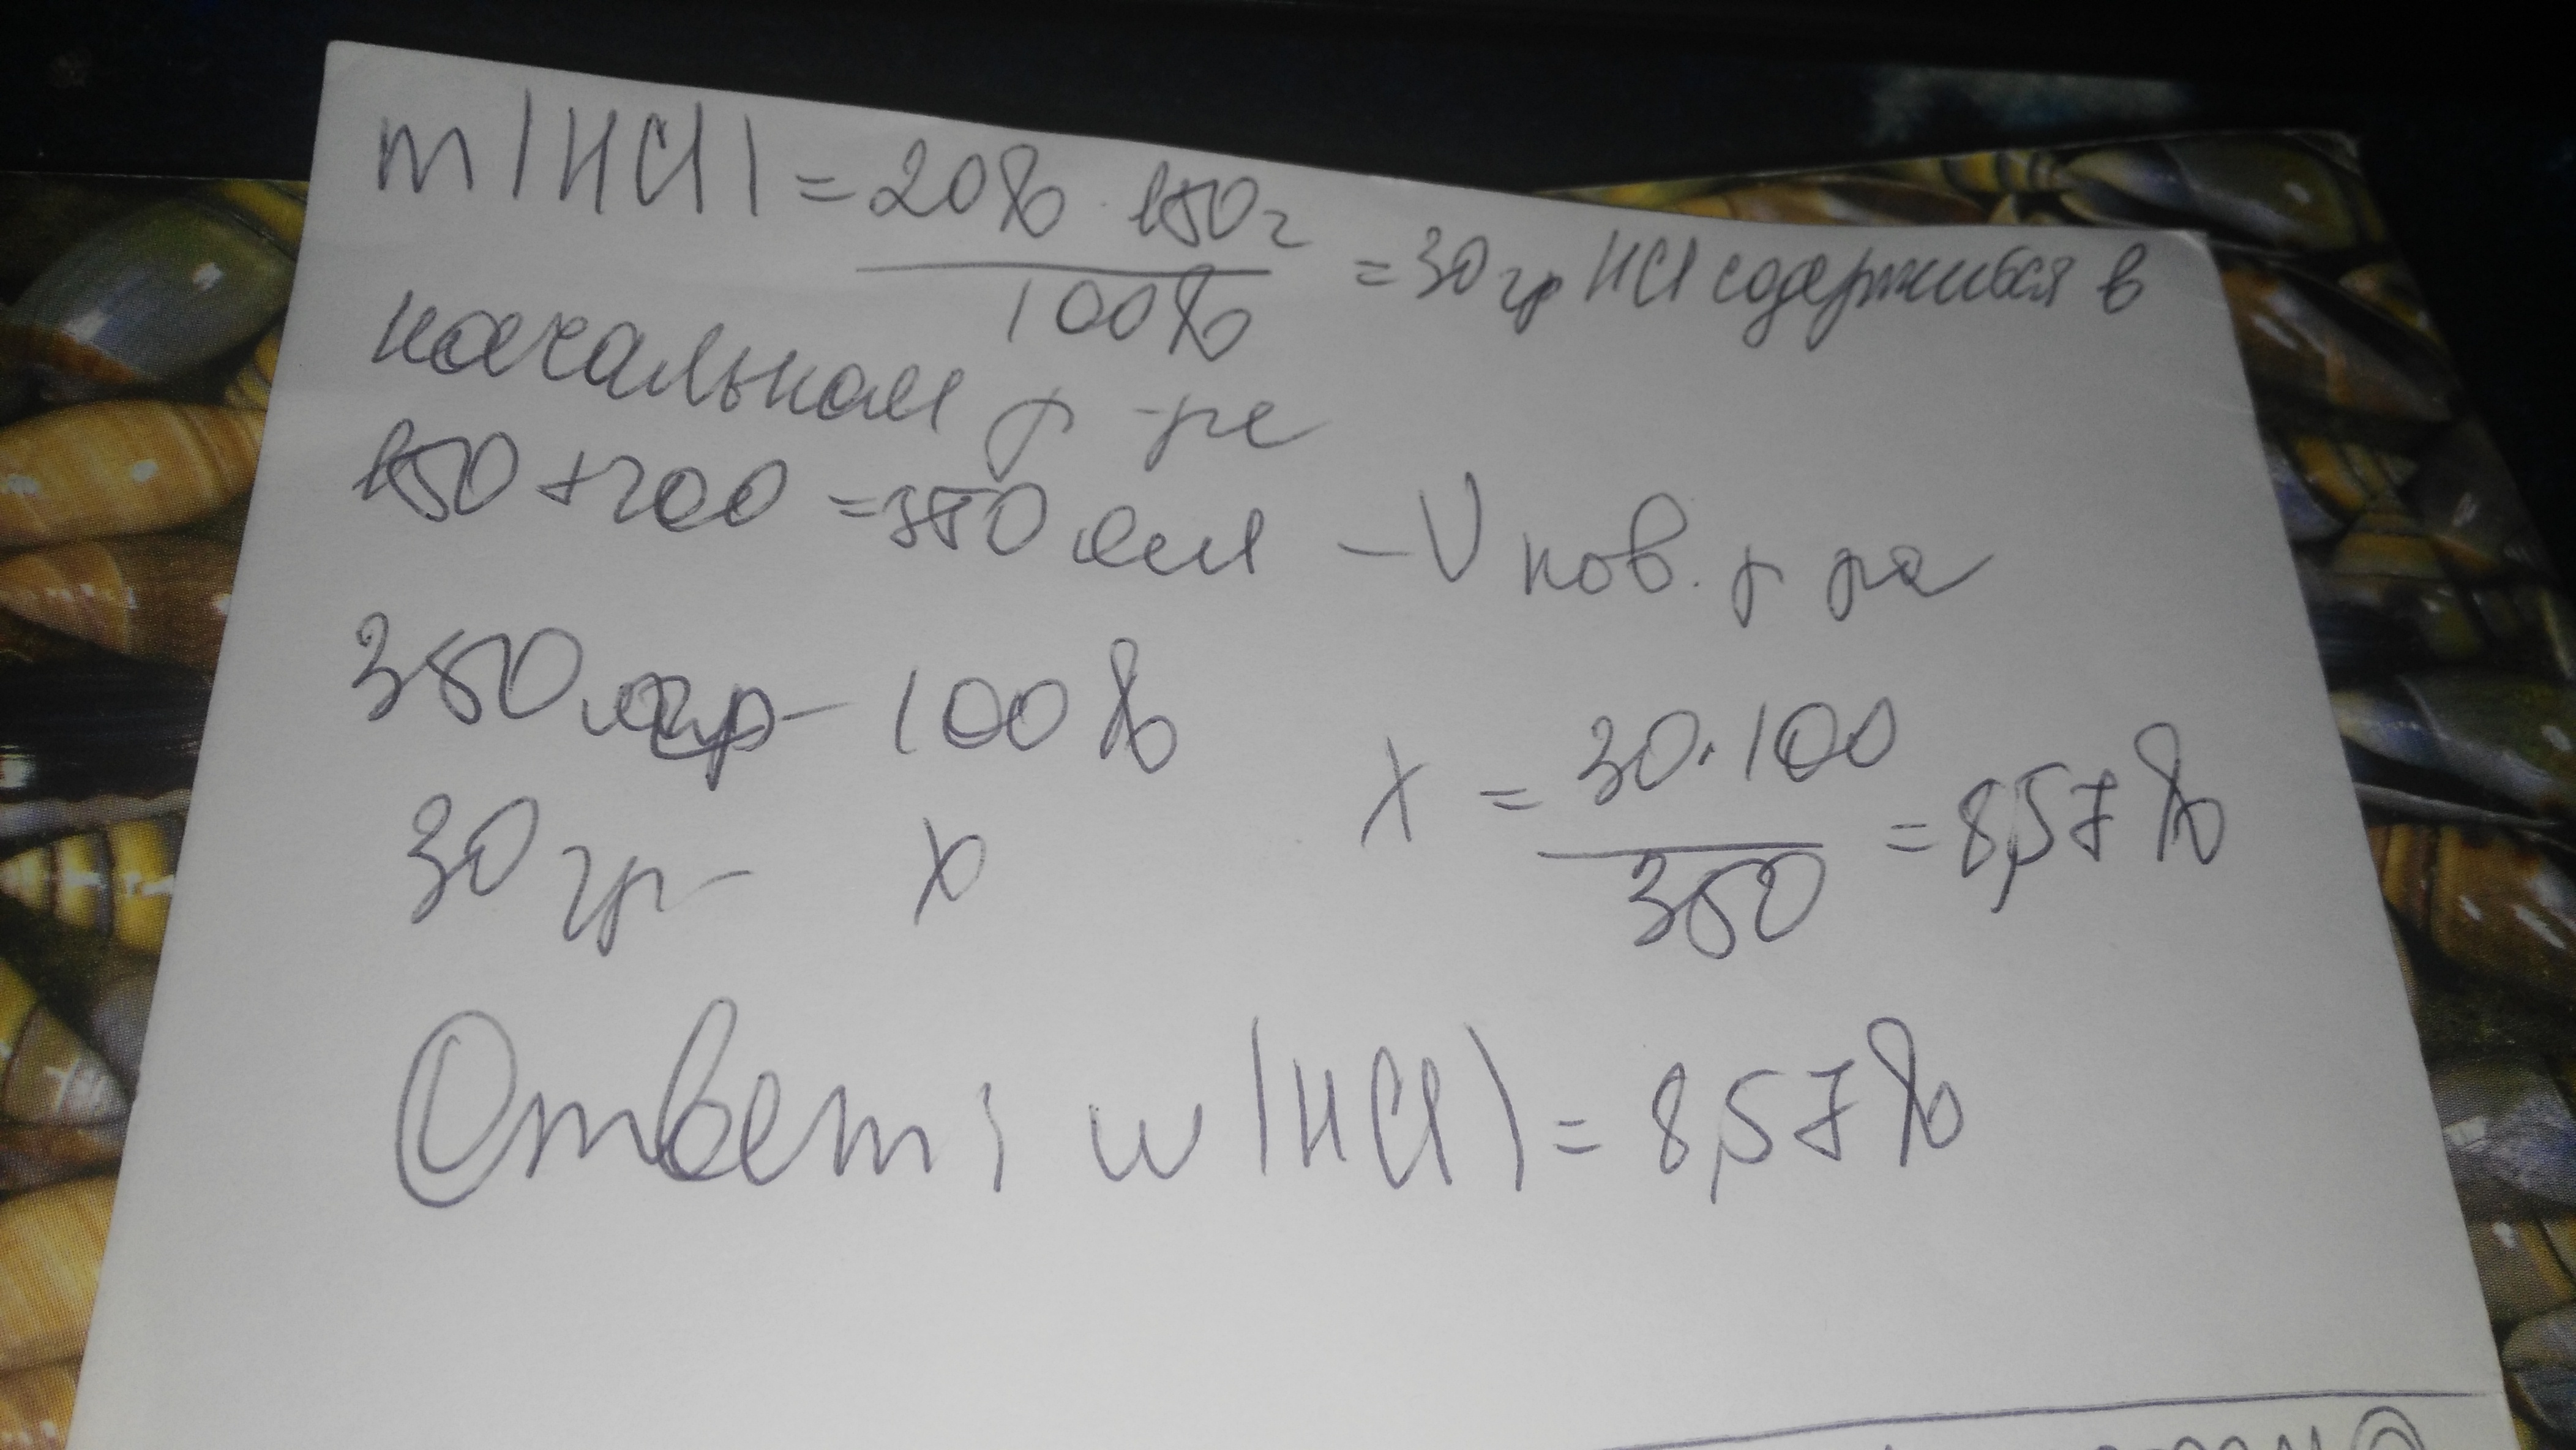 m(HCl) = 20% · 150г / 100% = 30 гр HCl содержится в
начальном р-ре
150 + 200 = 350 мл – V нов. р ра
350 гр – 100%
30 гр – x
x = 30 · 100 / 350 = 8,57%
Ответ: w(HCl) = 8,57%